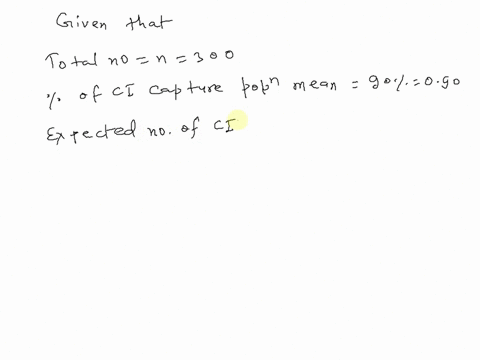 Given that
Total no = n = 300
% of CI capture popⁿ mean = 90% = 0.90
Expected no. of CI